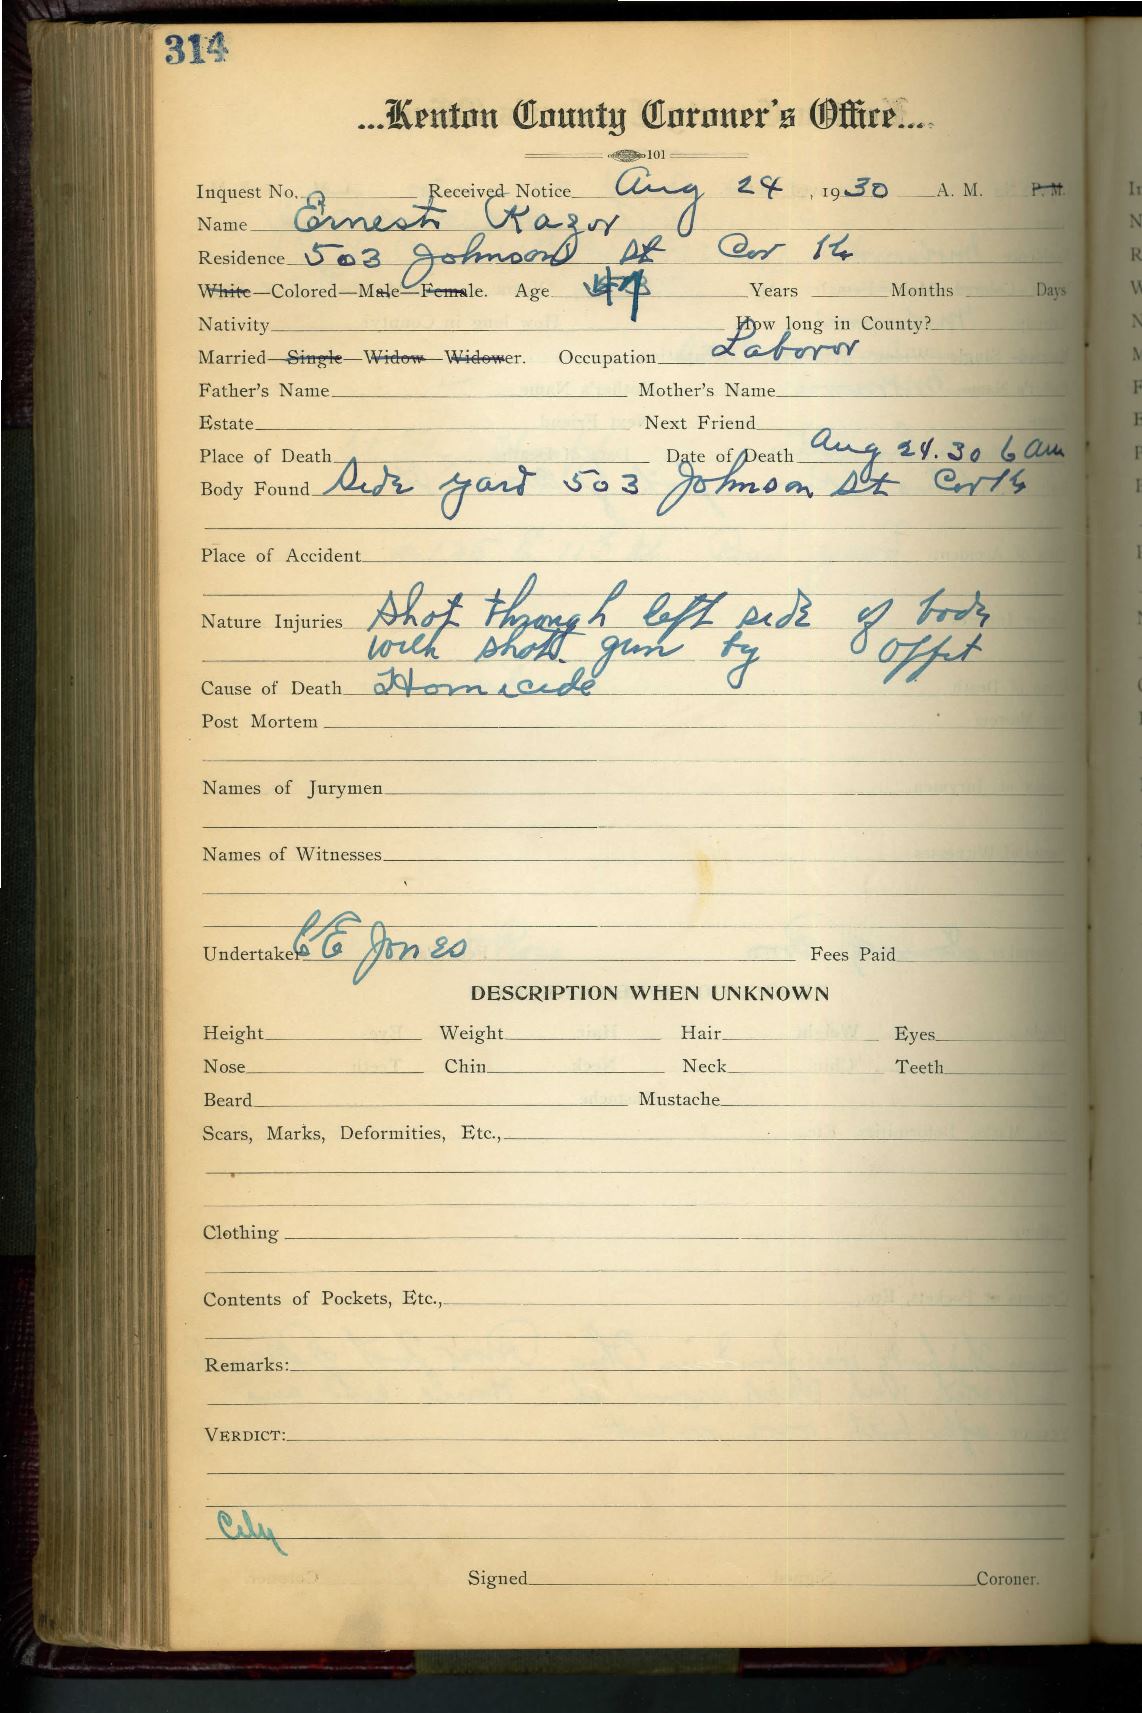 314
...Kenton County Coroner's Office...
101
Inquest No. Received Notice Aug 24, 1930 A. M. P. M.
Name Ernest Kazor
Residence 503 Johnson St Cov
White—Colored—Male—Female. Age Years Months Days
Nativity How long in County?
Married—Single—Widow—Widower. Occupation Laboror
Father's Name Mother's Name
Estate Next Friend
Place of Death Date of Death Aug 24. 30 6 am
Body Found Side yard 503 Johnson St
Place of Accident
Nature Injuries Shot through left side of body
with shot gun by Offit
Cause of Death Homicide
Post Mortem
Names of Jurymen
Names of Witnesses
Undertaker CE Jones Fees Paid
DESCRIPTION WHEN UNKNOWN
Height Weight Hair Eyes
Nose Chin Neck Teeth
Beard Mustache
Scars, Marks, Deformities, Etc.,
Clothing
Contents of Pockets, Etc.,
Remarks:
VERDICT:
City
Signed Coroner.